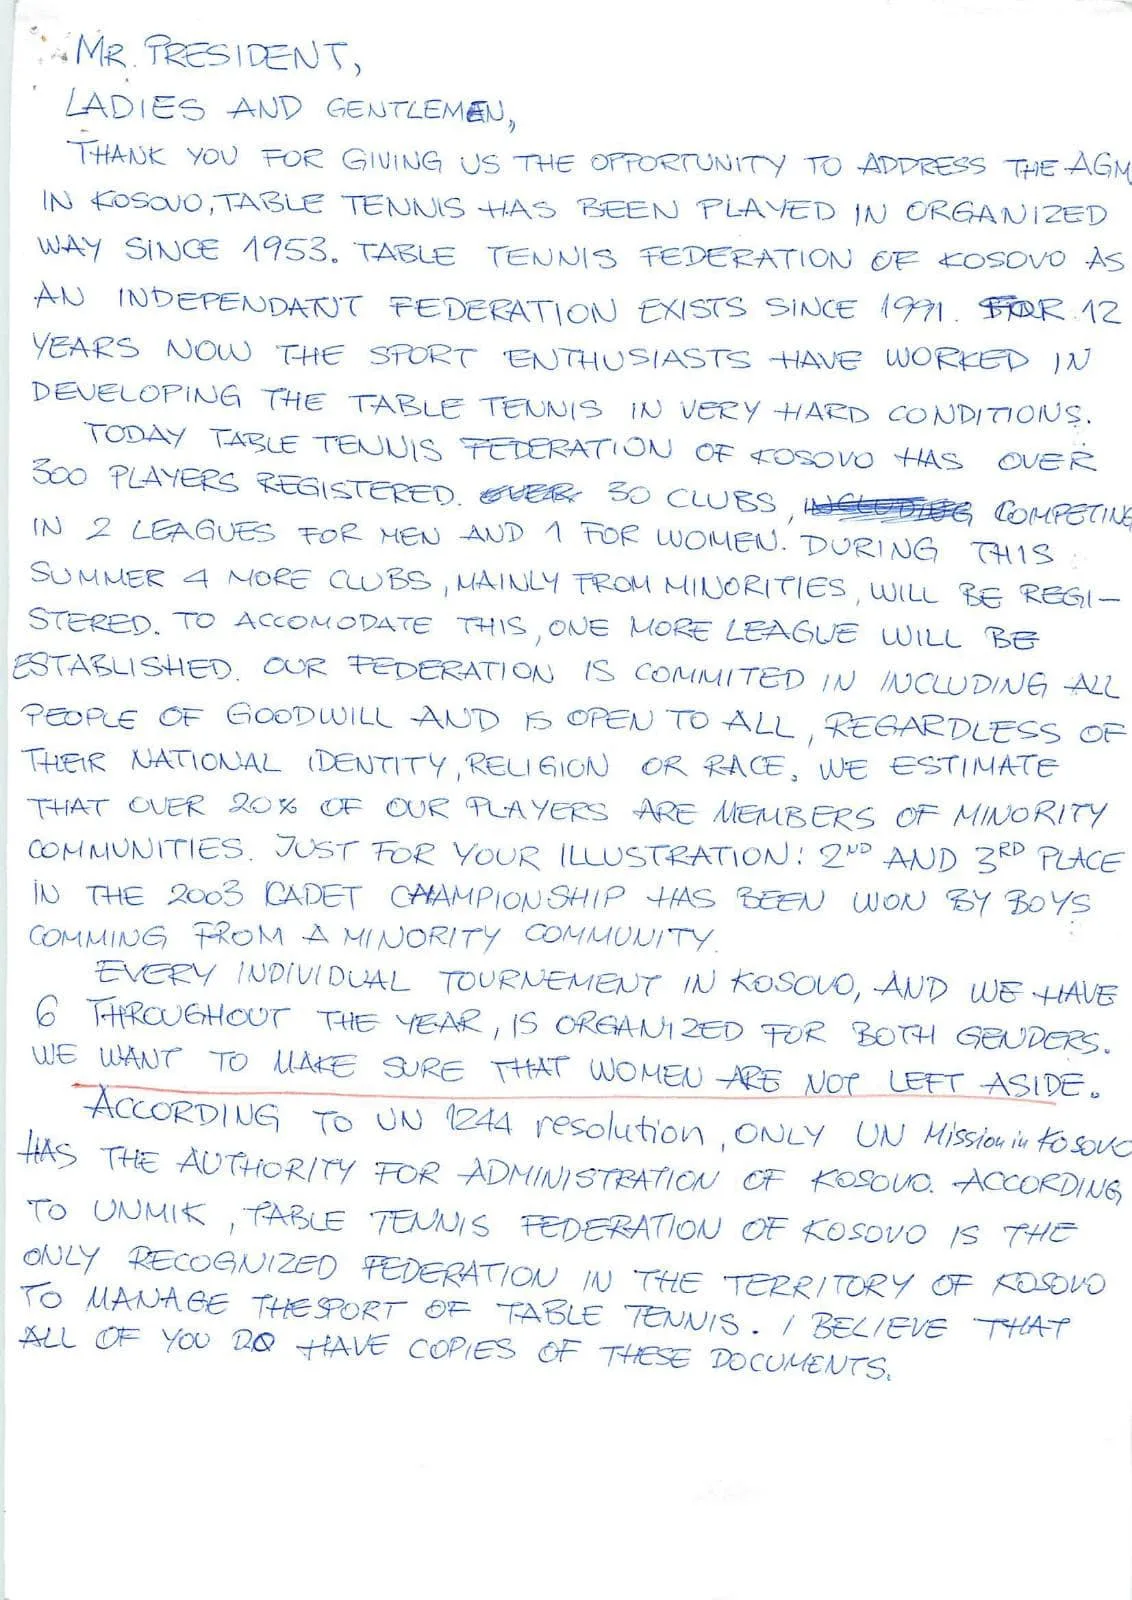 MR. PRESIDENT,
LADIES AND GENTLEMEN,
THANK YOU FOR GIVING US THE OPPORTUNITY TO ADDRESS THE AGM
IN KOSOVO, TABLE TENNIS HAS BEEN PLAYED IN ORGANIZED
WAY SINCE 1953. TABLE TENNIS FEDERATION OF KOSOVO AS
AN INDEPENDATNT FEDERATION EXISTS SINCE 1991. FOR 12
YEARS NOW THE SPORT ENTHUSIASTS HAVE WORKED IN
DEVELOPING THE TABLE TENNIS IN VERY HARD CONDITIONS.
TODAY TABLE TENNIS FEDERATION OF KOSOVO HAS OVER
300 PLAYERS REGISTERED. OVER 30 CLUBS, INCLUDING COMPETING
IN 2 LEAGUES FOR MEN AND 1 FOR WOMEN. DURING THIS
SUMMER 4 MORE CLUBS, MAINLY FROM MINORITIES, WILL BE REGI-
STERED. TO ACCOMODATE THIS, ONE MORE LEAGUE WILL BE
ESTABLISHED. OUR FEDERATION IS COMMITED IN INCLUDING ALL
PEOPLE OF GOODWILL AND IS OPEN TO ALL, REGARDLESS OF
THEIR NATIONAL IDENTITY, RELIGION OR RACE. WE ESTIMATE
THAT OVER 20% OF OUR PLAYERS ARE MEMBERS OF MINORITY
COMMUNITIES. JUST FOR YOUR ILLUSTRATION: 2ND AND 3RD PLACE
IN THE 2003 CADET CHAMPIONSHIP HAS BEEN WON BY BOYS
COMMING FROM A MINORITY COMMUNITY.
EVERY INDIVIDUAL TOURNEMENT IN KOSOVO, AND WE HAVE
6 THROUGHOUT THE YEAR, IS ORGANIZED FOR BOTH GENDERS.
WE WANT TO MAKE SURE THAT WOMEN ARE NOT LEFT ASIDE.
ACCORDING TO UN 1244 resolution, ONLY UN Mission in KOSOVO
HAS THE AUTHORITY FOR ADMINISTRATION OF KOSOVO. ACCORDING
TO UNMIK, TABLE TENNIS FEDERATION OF KOSOVO IS THE
ONLY RECOGNIZED FEDERATION IN THE TERRITORY OF KOSOVO
TO MANAGE THE SPORT OF TABLE TENNIS. I BELIEVE THAT
ALL OF YOU DO HAVE COPIES OF THESE DOCUMENTS.